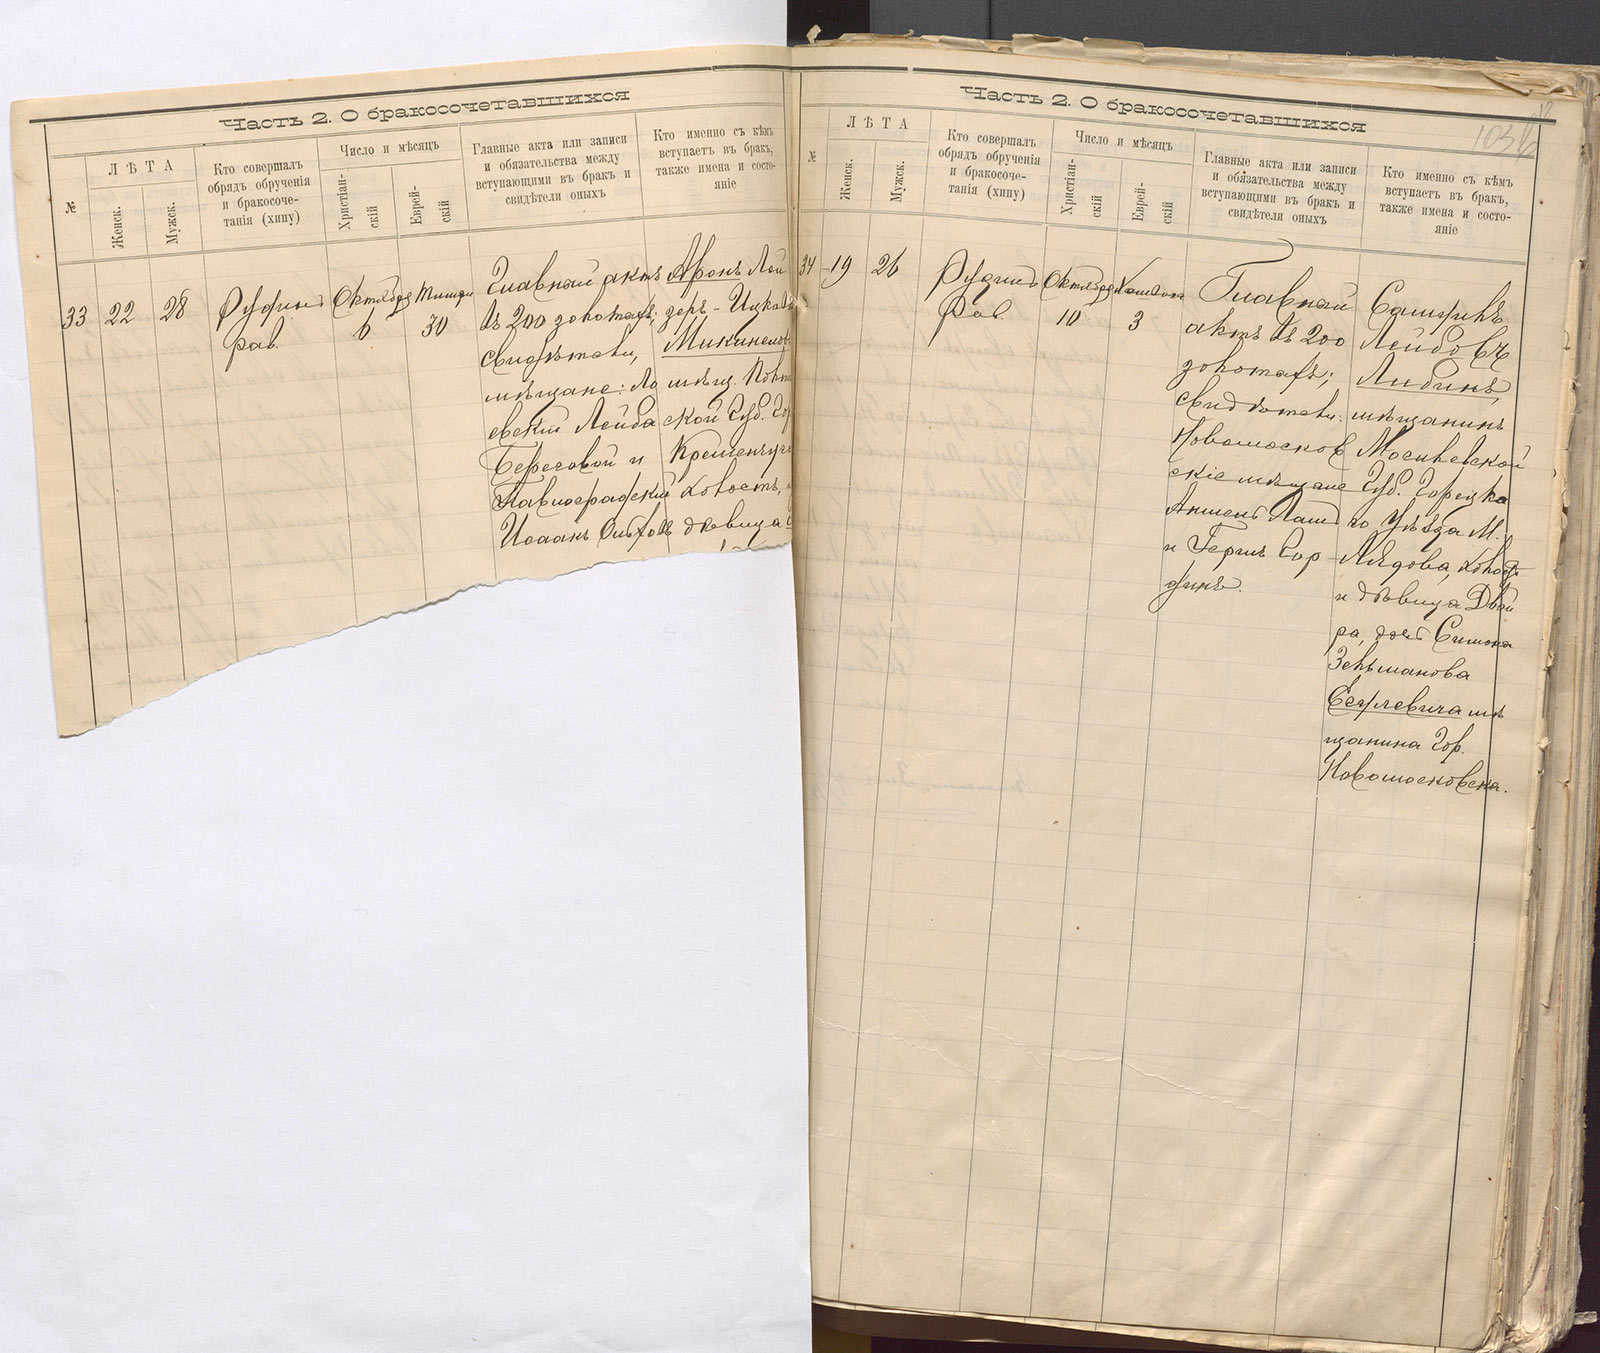 Часть 2. О бракосочетавшихся
№
ЛѢТА
Женск.
Мужск.
Кто совершалъ
обрядъ обрученія
и бракосоче-
танія (хипу)
Число и мѣсяцъ
Христіан-
скій
Еврей-
скій
Главные акта или записи
и обязательства между
вступающими въ бракъ и
свидѣтели оныхъ
Кто именно съ кѣмъ
вступаетъ въ бракъ,
также имена и состо-
яніе
33 22 28
рав.
Октября
6
Тишри
30
Главный актъ
въ 200 золотыхъ;
свидѣтели,
мѣщане: Ло
евскій Лейба
Береговой и
Павлоградскій
Исаакъ
Аронъ Лей
зеръ-Ицковъ
мѣщ. Полт
ской Губ. Гор
Кременчуг
холостъ,
дѣвица
Часть 2. О бракосочетавшихся
№
ЛѢТА
Женск.
Мужск.
Кто совершалъ
обрядъ обрученія
и бракосоче-
танія (хипу)
Число и мѣсяцъ
Христіан-
скій
Еврей-
скій
Главные акта или записи
и обязательства между
вступающими въ бракъ и
свидѣтели оныхъ
Кто именно съ кѣмъ
вступаетъ въ бракъ,
также имена и состо-
яніе
34 19 26
Рав.
Октября
10
3
Главный
актъ въ 200
золотыхъ;
свидѣтели:
Новомосков
скіе мѣщане
и Гершъ Сор
динъ.
Лейбовъ
Либинъ,
мѣщанинъ
Могилевской
Губ. Горецка
го Уѣзда М.
Лядова, холостъ
и дѣвица Двей
ра, дочь Симона
Зельманова
мѣ
щанина Гор.
Новомосковска.